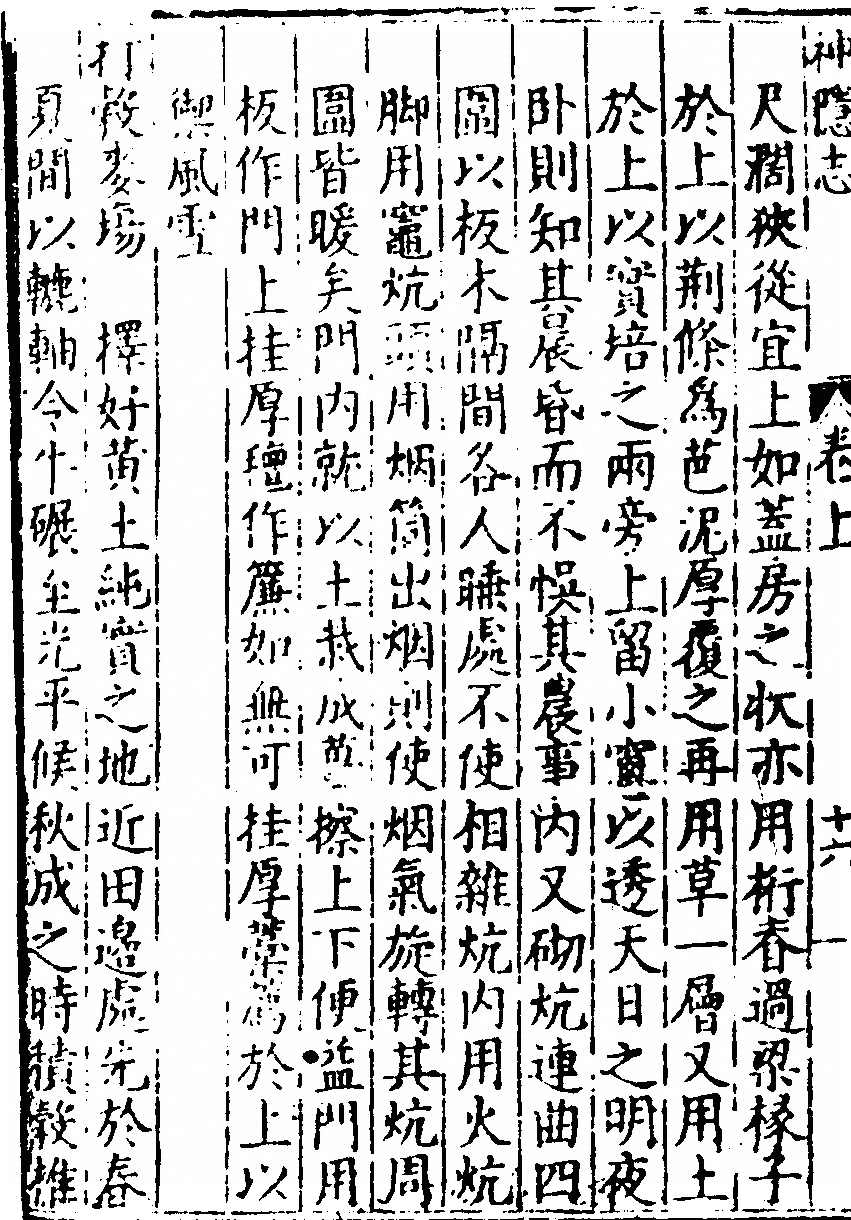 神隱志 卷上 十六
尺濶狹從宜上如蓋房之狀亦用桁舂過梁椽子
於上以荆條爲芭泥厚覆之再用草一層又用土
於上以實培之兩旁上留小竇以透天日之明夜
卧則知其晨昏而不悞其農事内又砌炕連曲四
圍以板木隔間各人睡處不使相雜炕内用火炕
脚用竈炕頭用烟筒出烟則使烟氣旋轉其炕周
圍皆暖矣門内就以土栽成 擦上下便益門用
板作門上挂厚氊作簾如無可挂厚藁薦於上以
禦風雪
打榖麥塲 擇好黄土純實之地近田邉處先於春
夏間以轆軸令牛碾至光平候秋成之時積榖堆